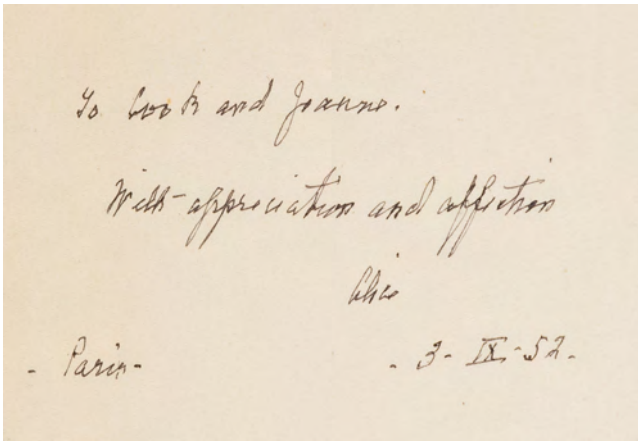 To Cook and Jeanne.
With appreciation and affection
Alice
- Paris -
- 3 - IX - 52 -